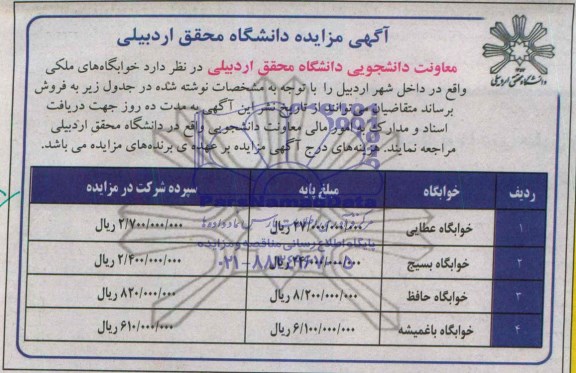 آگهی مزایده دانشگاه محقق اردبیلی
دانشگاه محقق اردبیلی
معاونت دانشجویی دانشگاه محقق اردبیلی در نظر دارد خوابگاه‌های ملکی
واقع در داخل شهر اردبیل را با توجه به مشخصات نوشته شده در جدول زیر به فروش
برساند متقاضیان می‌توانند از تاریخ نشر این آگهی به مدت ده روز جهت دریافت
اسناد و مدارک به امور مالی معاونت دانشجویی واقع در دانشگاه محقق اردبیلی
مراجعه نمایند. هزینه‌های درج آگهی مزایده بر عهده ی برنده‌های مزایده می باشد.
ردیف خوابگاه مبلغ پایه سپرده شرکت در مزایده
۱ خوابگاه عطایی ۲۷/۰۰۰/۰۰۰/۰۰۰ ریال ۲/۷۰۰/۰۰۰/۰۰۰ ریال
ParsNamadData
پایگاه اطلاع رسانی مناقصه و مزایده
۲ خوابگاه بسیج ۲۴/۰۰۰/۰۰۰/۰۰۰ ریال ۲/۴۰۰/۰۰۰/۰۰۰ ریال
۳ خوابگاه حافظ ۸/۲۰۰/۰۰۰/۰۰۰ ریال ۸۲۰/۰۰۰/۰۰۰ ریال
۴ خوابگاه باغمیشه ۶/۱۰۰/۰۰۰/۰۰۰ ریال ۶۱۰/۰۰۰/۰۰۰ ریال